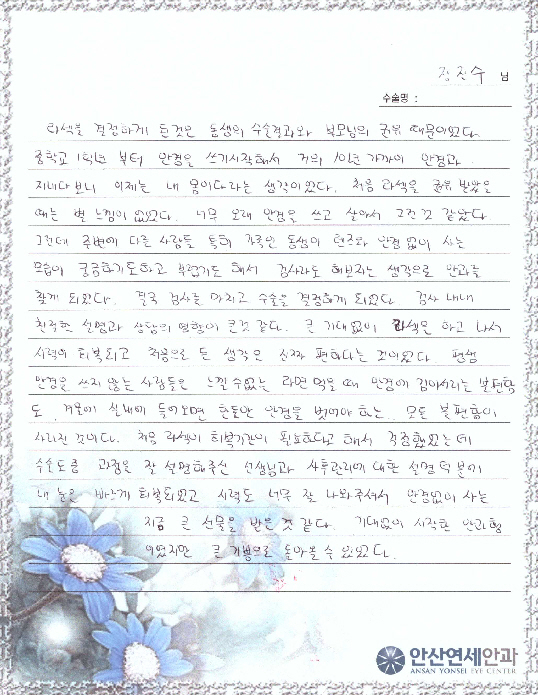 정진수 님
수술명 :
라섹을 결정하게 된것은 동생의 수술결과와 부모님의 권유 때문이었다.
중학교 1학년 부터 안경을 쓰기시작해서 거의 10년 가까이 안경과
지내다보니 이제는 내 몸이다라는 생각이었다. 처음 라섹을 권유 받았을
때는 별 느낌이 없었다. 너무 오래 안경을 쓰고 살아서 그런것 같았다
그런데 주변에 다른 사람들 특히 가족인 동생이 렌즈와 안경 없이 사는
모습이 궁금하기도하고 부럽기도 해서 검사라도 해보자는 생각으로 안과를
찾게 되었다. 결국 검사를 마치고 수술을 결정하게 되었다. 검사 내내
친절한 설명과 상담의 영향이 큰것 같다. 큰 기대없이 라섹을 하고 나서
시력이 회복되고 처음으로 든 생각은 진짜 편하다는 것이었다. 평생
안경을 쓰지 않는 사람들은 느낄수없는 라면 먹을 때 안경에 김서리는 불편함
도 겨울에 실내에 들어오면 한동안 안경을 벗어야 하는 모든 불편함이
사라진 것이다. 처음 라섹이 회복기간이 필요하다고 해서 걱정했었는데
수술도중 과정을 잘 설명해주신 선생님과 사후관리에 대한 설명 덕분에
내 눈은 빠르게 회복되었고 시력도 너무 잘 나와주셔서 안경없이 사는
지금 큰 선물을 받은 것 같다. 기대없이 시작한 안과행
이었지만 큰 기쁨으로 돌아올 수 있었다.
안산연세안과
ANSAN YONSEI EYE CENTER